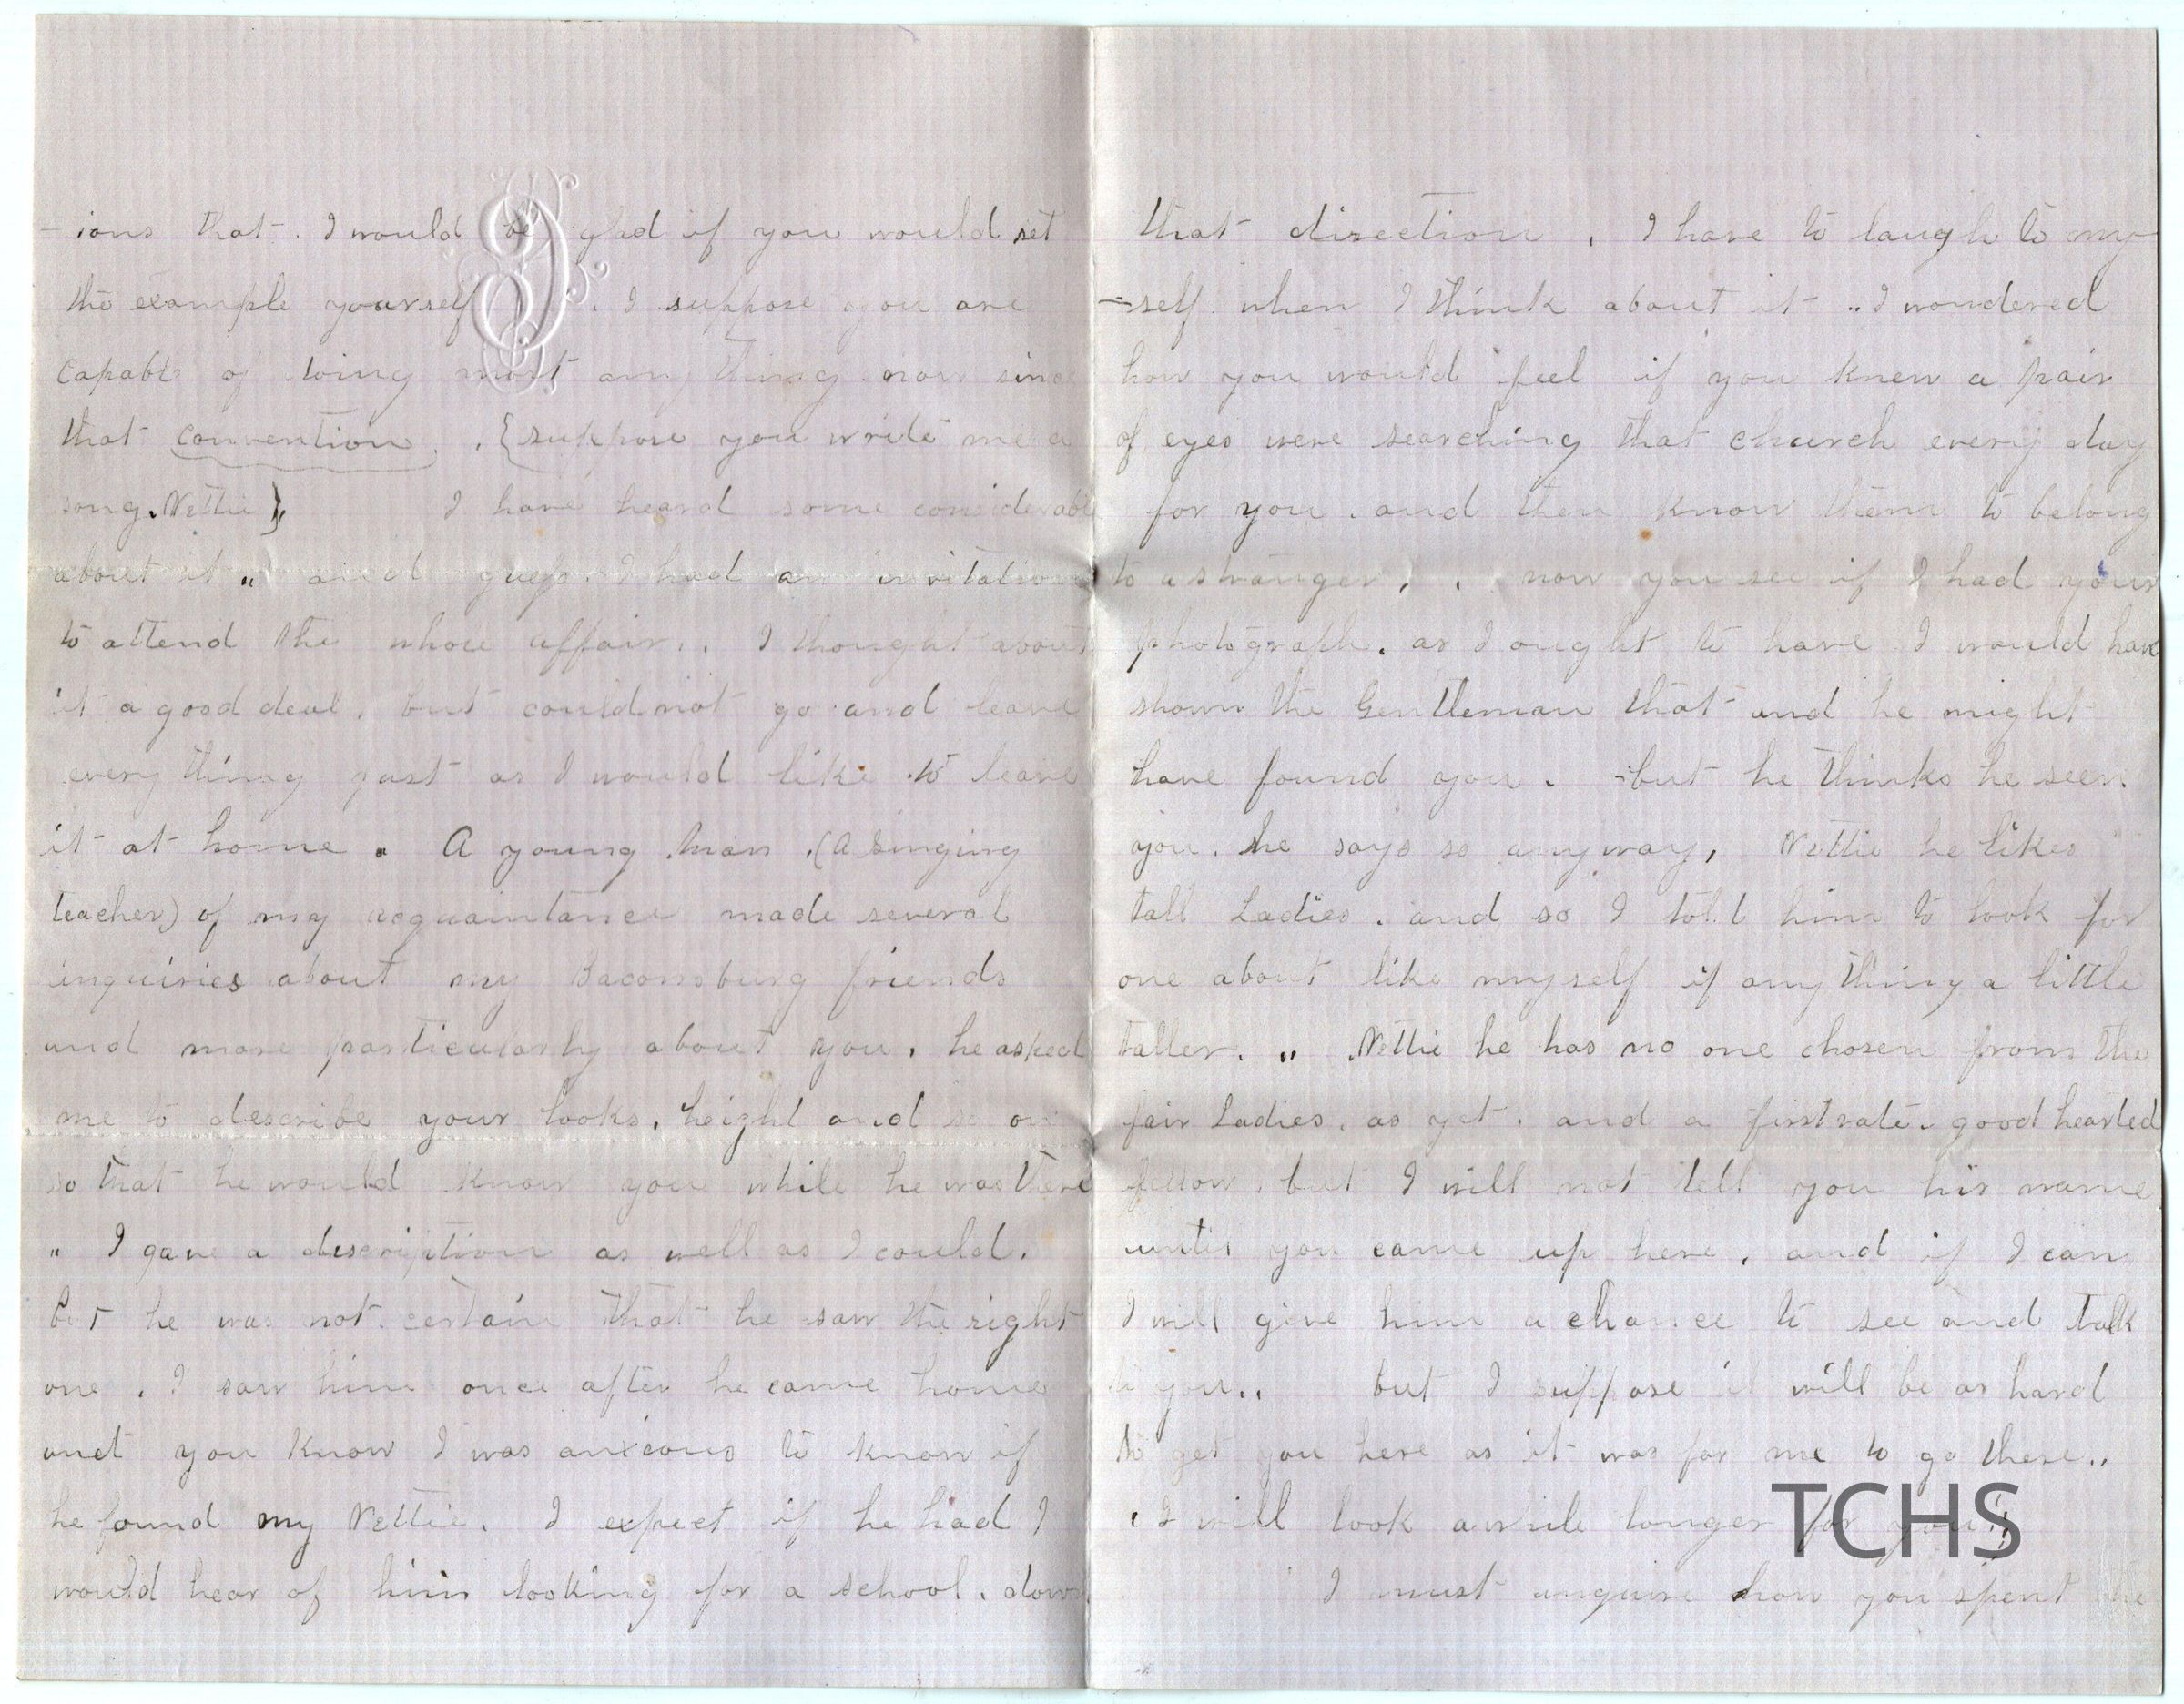 -ions that. I would be glad if you would set
the example yourself. I suppose you are
capable of doing most any thing now since
that convention. . {suppose you write me a
song. Nettie},, I have heard some considerable
about it ,, and guess I had an invitation
to attend the whole affair. . I thought about
it a good deal. but could not go and leave
every thing just as I would like to leave
it at home. A young man. (A Singing
teacher) of my acquaintance made several
inquiries about my Baconsburg friends
and more particularly about you. he asked
me to describe your looks. height and so on
so that he would know you while he was there
,, I gave a description as well as I could.
but he was not certain that he saw the right
one. I saw him once after he came home
and you know I was anxious to know if
he found my Nettie. I expect if he had I
would hear of him looking for a school. down
that direction. I have to laugh to my-
-self when I think about it ,, I wondered
how you would feel if you knew a pair
of eyes were searching that church every day
for you. and then know them to belong
to a stranger. . now you see if I had your
photograph. as I ought to have I would have
shown the Gentleman that and he might
have found you. -but he thinks he seen
you. he says so anyway, Nettie he likes
tall Ladies. and so I told him to look for
one about like myself if any thing a little
taller. ,, Nettie he has no one chosen from the
fair Ladies. as yet. and a firstrate. good hearted
fellow. but I will not tell you his name
until you come up here. and if I can
I will give him a chance to see and talk
to you.. but I suppose it will be as hard
to get you here as it was for me to go there..
. I will look awhile longer for you!,
I must enquire how you spent the
TCHS